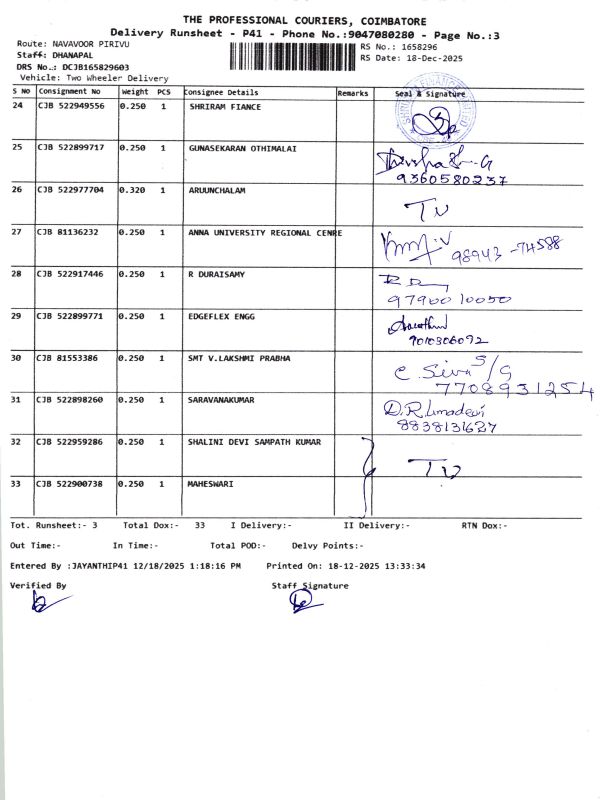 THE PROFESSIONAL COURIERS, COIMBATORE
Delivery Runsheet - P41 - Phone No.:9047080280 - Page No.:3
Route: NAVAVOOR PIRIVU
RS No.: 1658296
Staff: DHANAPAL
RS Date: 18-Dec-2025
DRS No.: DCJB165829603
Vehicle: Two Wheeler Delivery
S No Consignment No Weight PCS Consignee Details Remarks Seal & Signature
24 CJB 522949556 0.250 1 SHRIRAM FIANCE
25 CJB 522899717 0.250 1 GUNASEKARAN OTHIMALAI
9360580237
26 CJB 522977704 0.320 1 ARUUNCHALAM
27 CJB 81136232 0.250 1 ANNA UNIVERSITY REGIONAL CENRE
98943-74588
28 CJB 522917446 0.250 1 R DURAISAMY
9790010050
29 CJB 522899771 0.250 1 EDGEFLEX ENGG
9010306092
30 CJB 81553386 0.250 1 SMT V.LAKSHMI PRABHA
C. Siva S/G
7708931254
31 CJB 522898260 0.250 1 SARAVANAKUMAR
D.R.Umadevi
8838131627
32 CJB 522959286 0.250 1 SHALINI DEVI SAMPATH KUMAR
33 CJB 522900738 0.250 1 MAHESWARI
Tot. Runsheet:- 3 Total Dox:- 33 I Delivery:- II Delivery:- RTN Dox:-
Out Time:- In Time:- Total POD:- Delvy Points:-
Entered By :JAYANTHIP41 12/18/2025 1:18:16 PM Printed On: 18-12-2025 13:33:34
Verified By Staff Signature